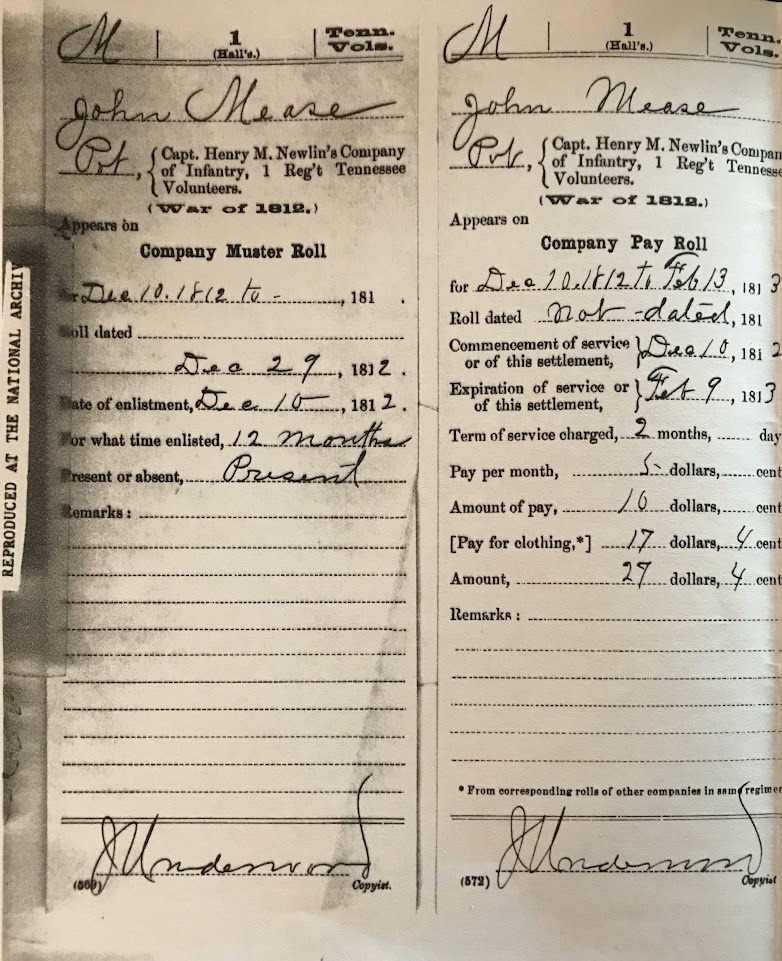 REPRODUCED AT THE NATIONAL ARCHIV
M | 1 | Tenn.
(Hall's.) Vols.
John Mease
Pvt, { Capt. Henry M. Newlin's Company
of Infantry, 1 Reg't Tennessee
Volunteers.
(War of 1812.)
Appears on
Company Muster Roll
for Dec 10.1812 to -, 181 .
Roll dated
Dec 29, 1812.
Date of enlistment, Dec 10, 1812.
For what time enlisted, 12 months
Present or absent, Present
Remarks:
J Underwood
Copyist.
M | 1 | Tenn.
(Hall's.) Vols.
John Mease
Pvt, { Capt. Henry M. Newlin's Compan
of Infantry, 1 Reg't Tennesse
Volunteers.
(War of 1812.)
Appears on
Company Pay Roll
for Dec 10.1812 to Feb 13, 1813
Roll dated not-dated, 181
Commencement of service
or of this settlement, } Dec 10, 1812
Expiration of service or
of this settlement, } Feb 9, 1813
Term of service charged, 2 months, day
Pay per month, 5- dollars, cent
Amount of pay, 10 dollars, cent
[Pay for clothing,*] 17 dollars, 4 cent
Amount, 27 dollars, 4 cent
Remarks:
* From corresponding rolls of other companies in same regimen
J Underwood
(572) Copyist